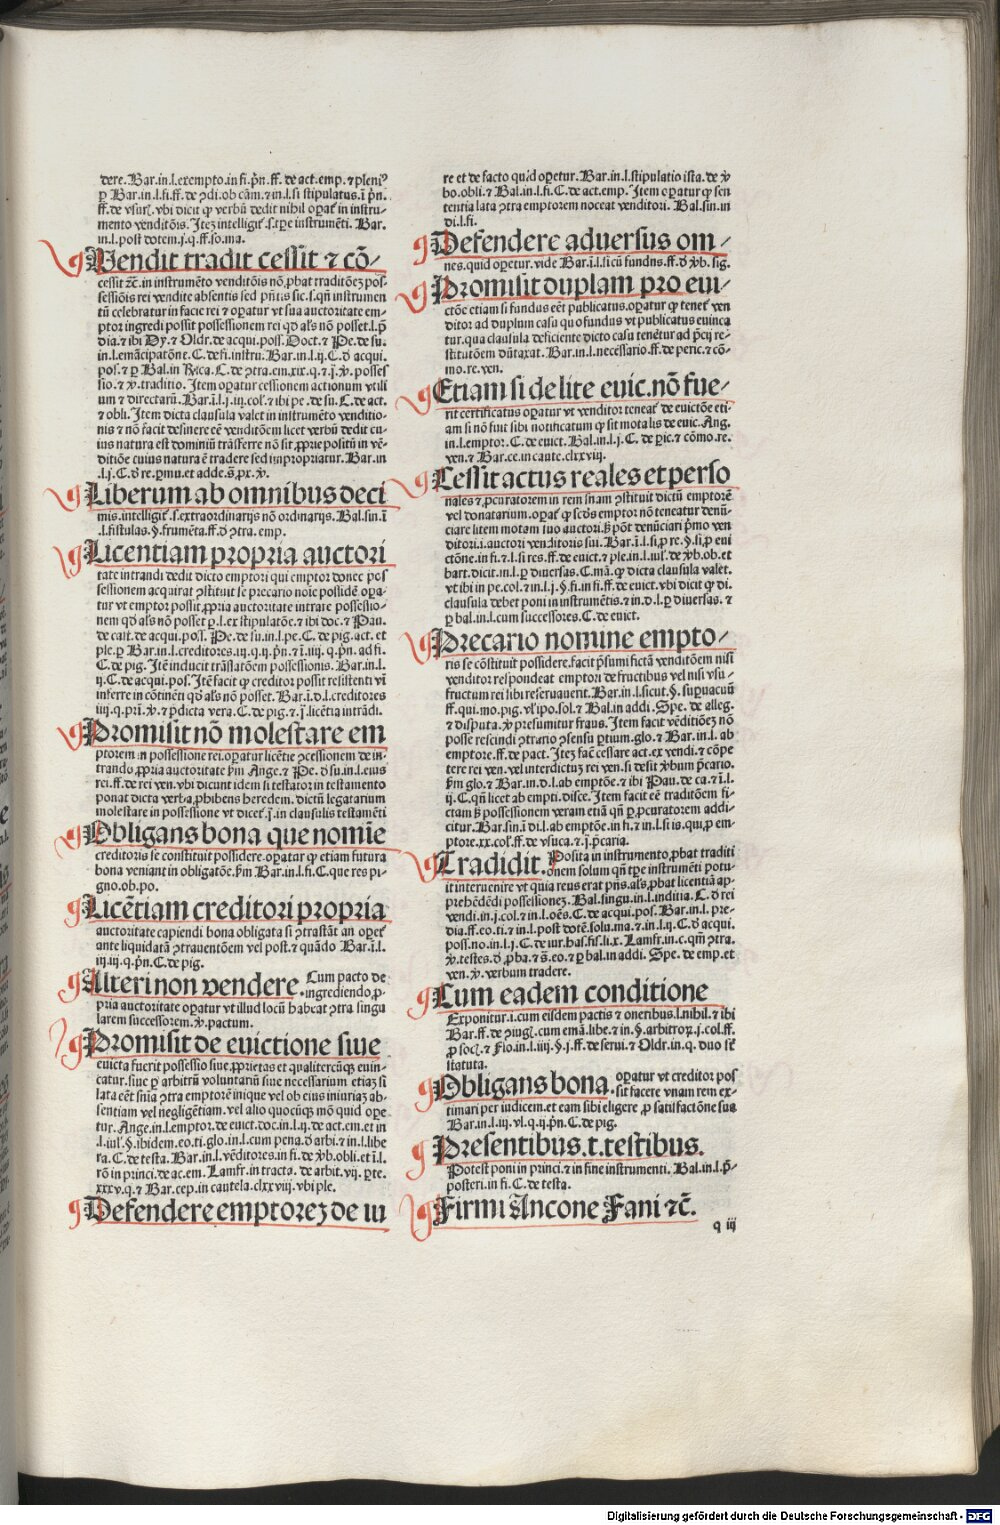 dere. Bar. in. l. exempto. in fi. p̄n. ff. de act. emp. ⁊ pleniꝰ
ꝑ Bar. in. l. fi. ff. de ꝯdi. ob cām. ⁊ in. l. si stipulatus. ī p̄n.
ff. de vsur. vbi dicit ꝙ verbū dedit nihil oꝑat̄ in instru-
mento venditōis. Iteꝫ intelligit̄. s. tꝑe instrumēti. Bar.
in. l. post dotem. j. q. ff. so. ma.
Uendit tradit cessit ⁊ cō-
cessit ⁊c̄. in instrumēto venditōis nō ꝓbat traditōeꝫ pos-
sessiōis rei vendite absentis sed pn̄tis sic. s. qn̄ instrumen
tū celebratur in facie rei ⁊ oꝑatur vt sua auctoritate em-
ptor ingredi possit possessionem rei qđ als nō posset. l. p̄
dia. ⁊ ibi Dy. ⁊ Oldr. de acqui. poss. Doct. ⁊ Pe. de su.
in. l. emācipatōne. C. de fi. instru. Bar. in. l. ij. C. đ acqui.
pos. ⁊ ꝑ Bal. in
sio. ⁊ ꝟ. traditio. Item oꝑatur cessionem actionum vtili
um ⁊ directarū. Bar. ī. l. j. iij. col. ⁊ ibi pe. de su. C. de act.
⁊ obli. Item dicta clausula valet in instrumēto venditio-
nis ⁊ nō facit desinere eē venditōem licet verbū dedit cu-
ius natura est dominiū trāsferre nō sit ꝓprie positū in vē-
ditiōe cuius natura ē tradere sed impropriatur. Bar. in
.l. j. C. đ re. ꝑmu. et adde. s̄. ꝓx. ꝟ.
Liberum ab omnibus deci
mis. intelligit̄. s. extraordinarijs nō ordinarijs. Bal. sin. ī
.l. fistulas. §. frumēta. ff. đ ꝯtra. emp.
Licentiam propria auctori
tate intrandi dedit dicto emptori qui emptor donec pos
sessionem acquirat ꝯstituit se precario noīe possidē. oꝑa-
tur vt emptor possit ꝓpria auctoritate intrare possessio-
nem qđ als nō posset ꝑ. l. ex stipulatōe. ⁊ ibi doc. ⁊ Pau.
de cast. de acqui. poss. Pe. de su. in. l. pe. C. de pig. act. et
ple. ꝑ Bar. in. l. creditores. iij. q. ij. p̄n. ⁊ ī. iiij. q. p̄n. ad fi.
C. de pig. Itē inducit trāslatōem possessionis. Bar. in. l.
ij. C. de acqui. pos. Itē facit ꝙ creditor possit resistenti vī
inferre in cōtinēti qđ als nō posset. Bar. ī. d. l. creditores
iiij. q. pri. ꝟ. ⁊ p̄dicta vera. C. de pig. ⁊. j. licētia intrādi.
Promisit nō molestare em
ptorem in possessione rei. oꝑatur licētie ꝯcessionem de in-
trando ꝓpria auctoritate ẜm Ange. ⁊ Pe. đ su. in. l. eius
rei. ff. de rei ven. vbi dicunt idem si testator in testamento
ponat dicta verba ꝓhibens heredem. dictū legatarium
molestare in possessione vt dicet̄. j. in clausulis testamēti
Obligans bona que nomīe
creditoris se constituit possidere. oꝑatur ꝙ etiam futura
bona veniant in obligatōe. ẜm Bar. in. l. fi. C. que res pi-
gno. ob. po.
Licētiam creditori propria
auctoritate capiendi bona obligata si ꝯtrastāt an oꝑet̄
ante liquidatā ꝯtrauentōem vel post. ⁊ quādo Bar. ī. l.
iij. iij. q. p̄n. C. de pig.
Alteri non vendere. Cum pacto de
ingrediendo. ꝓ-
pria auctoritate oꝑatur vt illud locū habeat ꝯtra singu
larem successorem. ꝟ. pactum.
Promisit de euictione siue
euicta fuerit possessio siue. ꝓprietas et qualitercūqꝫ euin-
catur. siue ꝑ arbitrū voluntariū siue necessarium etiaꝫ si
lata eēt snīa ꝯtra emptorē inique vel ob eius iniuriaꝫ ab-
sentiam vel negligētiam. vel alio quocūqꝫ mō quid oꝑe
tur. Ange. in. l. emptor. de euict. doc. in. l. ij. de act. em. et in
.l. iul. §. ibidem. eo. ti. glo. in. l. cum pena. đ arbi. ⁊ in. l. libe
ra. C. de testa. Bar. in. l. vēditores. in fi. de ꝟb. obli. et ī. l.
rō in princi. de ac. em. Lamfr. in tracta. de arbit. vij. ꝑte.
xxxv. q. ⁊ Bar. cep. in cautela. clxxviij. vbi ple.
Defendere emptoreꝫ de iu
re et de facto quid oꝑetur. Bar. in. l. stipulatio ista. de ꝟ
bo. obli. ⁊ Bal. in. l. fi. C. de act. emp. Item oꝑatur ꝙ sen
tentia lata ꝯtra emptorem noceat venditori. Bal. sin. in
di. l. fi.
Defendere aduersus om-
nes. quid oꝑetur. vide Bar. ī. l. si cū fundus. ff. đ ꝟb. sig.
Promisit duplam pro eui-
ctōe etiam si fundus eēt publicatus. oꝑatur ꝙ tenet̄ ven
ditor ad duplum casu quo fundus vt publicatus euinca
tur. qua clausula deficiente dicto casu tenētur ad p̄cij re-
stitutōem dūtaxat. Bar. in. l. necessario. ff. de peric. ⁊ cō-
mo. re. ven.
Etiam si de lite euic. nō fue-
rit certificatus oꝑatur vt venditor teneat̄ de euictōe eti-
am si nō fuit sibi notificatum ꝙ sit mota lis de euic. Ang.
in. l. emptor. C. de euict. Bal. in. l. j. C. de ꝑic. ⁊ cōmo. re.
ven. ⁊ Bar. ce. in caute. clxxviij.
Cessit actus reales et perso
nales ⁊ ꝓcuratorem in rem suam ꝯstituit dictū emptorē
vel donatarium. oꝑat̄ ꝙ scđs emptor nō teneatur denū-
ciare litem motam suo auctori. ß pōt denūciari p̄mo ven
ditori. i. auctori venditoris sui. Bar. ī. l. si ꝓ re. §. si ꝓ eui
ctōne. in fi. ⁊ l. si res. ff. de euict. ⁊ ple. in. l. iul. de ꝟb. ob. et
bart. dicit. in. l. ꝑ diuersas. C. mā. ꝙ dicta clausula valet.
vt ibi in pe. col. ⁊ in. l. j. §. fi. in fi. ff. de euict. vbi dicit ꝙ di.
clausula debet poni in instrumētis. ⁊ in. d. l. ꝑ diuersas. ⁊
ꝑ bal. in. l. cum successores. C. de euict.
Precario nomine empto-
ris se cōstituit possidere. facit p̄sumi fictā venditōem nisi
venditor respondeat emptori de fructibus vel nisi vsu-
fructum rei sibi reseruauent. Bar. in. l. sicut. §. suꝑuacuū
ff. qui. mo. pig. vl ipo. sol. ⁊ Bal. in addi. Spe. de alleg.
⁊ disputa. ꝟ presumitur fraus. Item facit vēditiōeꝫ nō
posse rescindi ꝯtrario ꝯsensu ꝑtium. glo. ⁊ Bar. in. l. ab
emptore. ff. de pact. Iteꝫ fac̄ cessare act. ex vendi. ⁊ cōpe
tere rei ven. vel interdictuꝫ rei ven. si desit ꝟbum p̄cario.
ẜm glo. ⁊ Bar. in. d. l. ab emptōe. ⁊ ibi Pau. de ca. ⁊ ī. l.
ij. C. qn̄ licet ab empti. disce. Item facit eē traditōem fi-
ctam ß possessionem veram etiā qn̄ ꝑ ꝓcuratorem addi-
citur. Bar. sin. ī di. l. ab emptōe. in fi. ⁊ in. l. si is. qui. ꝓ em-
ptore. xx. col. ff. de vsuca. ⁊. j. p̄caria.
Tradidit. Posita in instrumento. ꝓbat traditi
onem solum qn̄ tꝑe instrumēti potu-
it interuenire vt quia reus erat pn̄s. als ꝓbat licentiā ap-
prehēdēdi possessioneꝫ. Bal. singu. in. l. inditia. C. đ rei
vendi. in. j. col. ⁊ in. l. oēs. C. de acqui. pos. Bar. in. l. pre-
dia. ff. eo. ti. ⁊ in. l. post dotē. solu. ma. ⁊ in. l. ij. C. đ acqui.
poss. no. in. l. j. C. de iur. has. fis. li. x. Lamfr. in c. qm̄ ꝯtra.
ꝟ. testes. đ ꝓba. ⁊ s̄. eo. ⁊ ꝑ bal. in addi. Spe. de emp. et
ven. ꝟ. verbum tradere.
Cum eadem conditione
Exponitur. i. cum eisdem pactis ⁊ oneribus. l. nihil. ⁊ ibi
Bar. ff. de ꝯiugl. cum emā. libe. ⁊ in. §. arbitroꝝ. j. col. ff.
ꝓ socl. ⁊ Flo. in. l. iiij. §. j. ff. de serui. ⁊ Oldr. in. q. duo st̄
statuta.
Obligans bona. oꝑatur vt creditor pos
sit facere vnam rem ex-
timari per iudicem. et eam sibi eligere ꝓ satisfactōne sua
Bar. in. l. iij. vl. q. ij. p̄n. C. de pig.
Presentibus. t. testibus.
Potest poni in princi. ⁊ in fine instrumenti. Bal. in. l. p̄-
posteri. in fi. C. de testa.
Firmi Ancone Fani ⁊c̄.
q iij
Digitalisierung gefördert durch die Deutsche Forschungsgemeinschaft - DFG